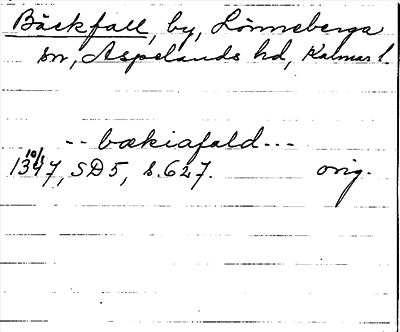 Bäckfall, by, Lönneberga
sn, Aspelands hd, Kalmar l.
-- bækiafald ---
10/3
1347, SD 5, s. 627. orig.